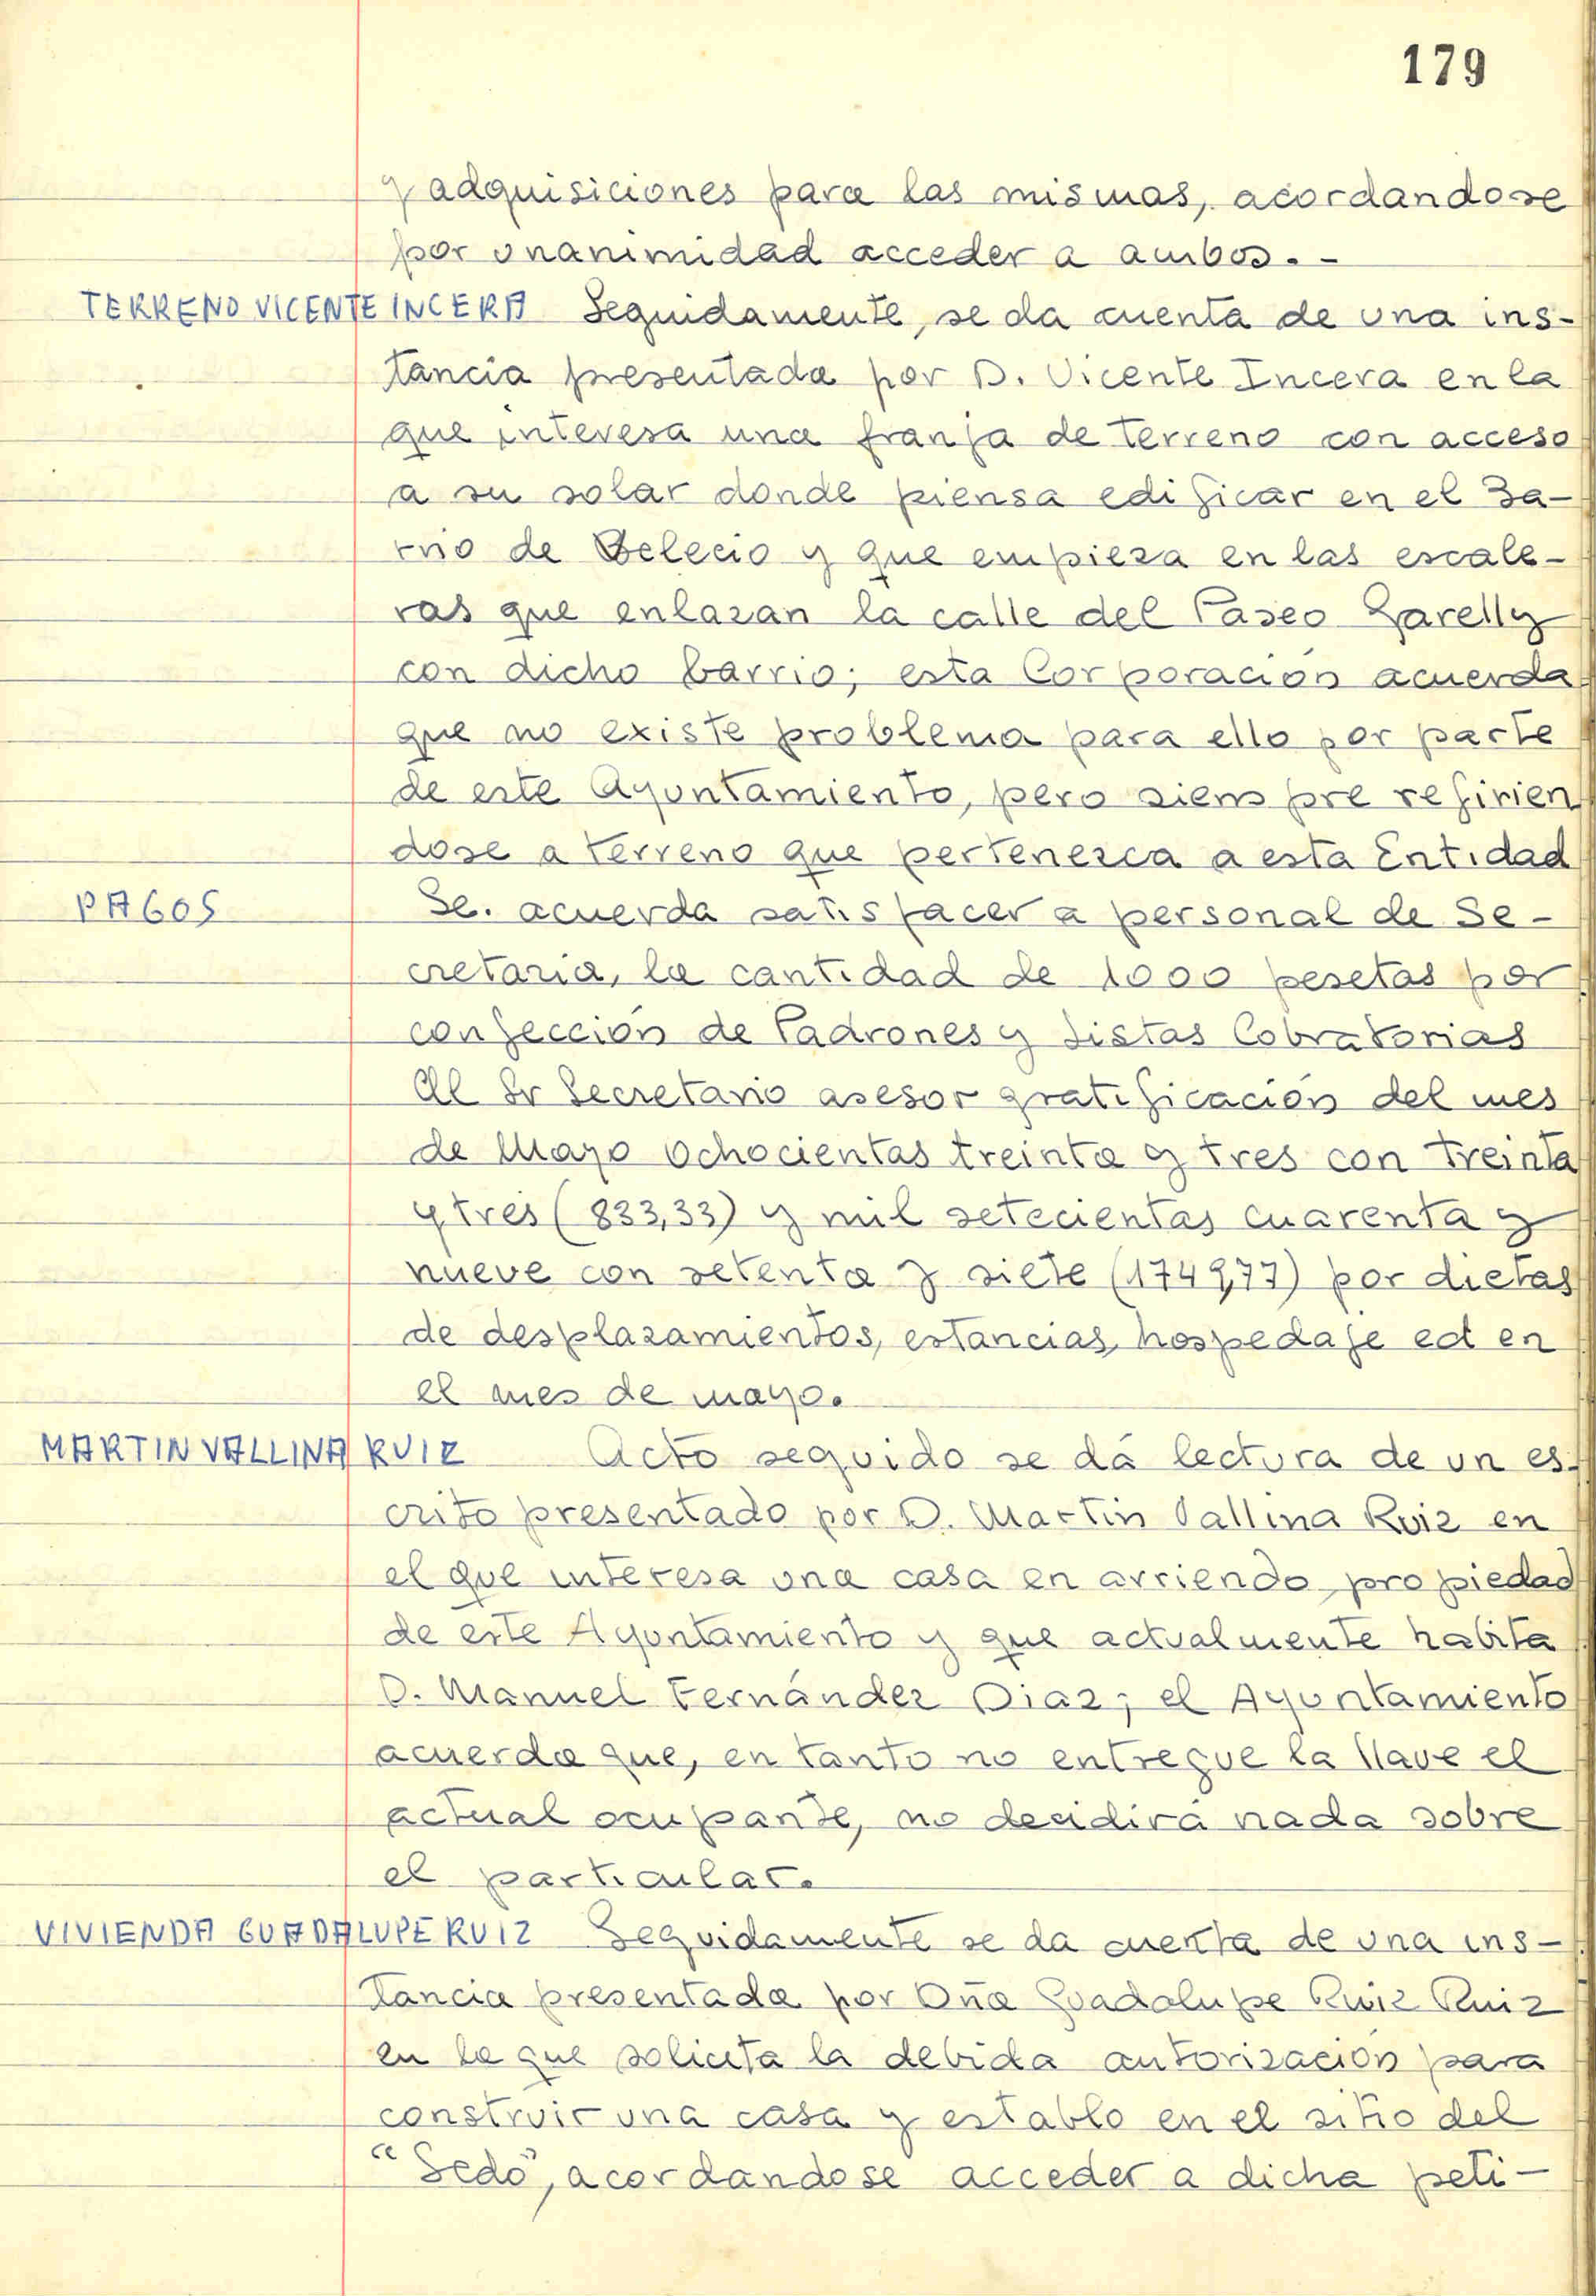 179
y adquisiciones para las mismas, acordandose
por unanimidad acceder a ambos. -
TERRENO VICENTE INCERA Seguidamente, se da cuenta de una ins-
tancia presentada por D. Vicente Incera en la
que interesa una franja de terreno con acceso
a su solar donde piensa edificar en el Ba-
rrio de Belecio y que empieza en las escale-
ras que enlazan la calle del Paseo Garelly
con dicho barrio; esta Corporación acuerda
que no existe problema para ello por parte
de este Ayuntamiento, pero siempre refirien
dose a terreno que pertenezca a esta Entidad
PAGOS Se. acuerda satisfacer a personal de Se-
cretaria, la cantidad de 1000 pesetas por
confección de Padrones y Listas Cobratorias
Al Sr Secretario asesor gratificación del mes
de Mayo ochocientas treinta y tres con treinta
y tres (833,33) y mil setecientas cuarenta y
nueve con setenta y siete (1749,77) por dietas
de desplazamientos, estancias, hospedaje ect en
el mes de mayo.
MARTIN VALLINA RUIZ Acto seguido se dá lectura de un es-
crito presentado por D. Martin Vallina Ruiz en
el que interesa una casa en arriendo propiedad
de este Ayuntamiento y que actualmente habita
D. Manuel Fernández Diaz; el Ayuntamiento
acuerda que, en tanto no entregue la llave el
actual ocupante, no decidirá nada sobre
el particular.
VIVIENDA GUADALUPE RUIZ Seguidamente se da cuenta de una ins-
tancia presentada por Dña Guadalupe Ruiz Ruiz
en la que solicita la debida autorización para
construir una casa y establo en el sitio del
"Sedo", acordandose acceder a dicha peti-